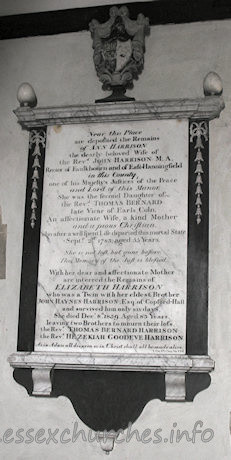 Near this Place
are deposited the Remains
of ANN HARRISON
the dearly beloved Wife of
the Revd. JOHN HARRISON M.A.
Rector of Faulkbourn and of East Hanningfield
in this County,
one of his Majesty's Justices of the Peace
and Lord of this Manor.
She was the Second Daughter of
the Revd. THOMAS BERNARD
late Vicar of Earls Coln.
An affectionate Wife, a kind Mother
and a pious Christian.
who after a well spent Life departed this mortal State
Septr. 2d. 1783 aged 55 Years.
She is not lost, but gone before.
The Memory of the Just is blessed.
With her dear and affectionate Mother
are interred the Remains of
ELIZABETH HARRISON
who was a Twin with her eldest Brother
JOHN HAYNES HARRISON Esq. of Copford Hall
and survived him only six days.
She died Decr. 8th. 1839 Aged 83 Years.
leaving two Brothers to mourn their loss.
the Revd. THOMAS BERNARD HARRISON
the Revd. HEZEKIAH GOODEVE HARRISON
As in Adam all die even so in Christ shall all be made alive.
essexchurches.info